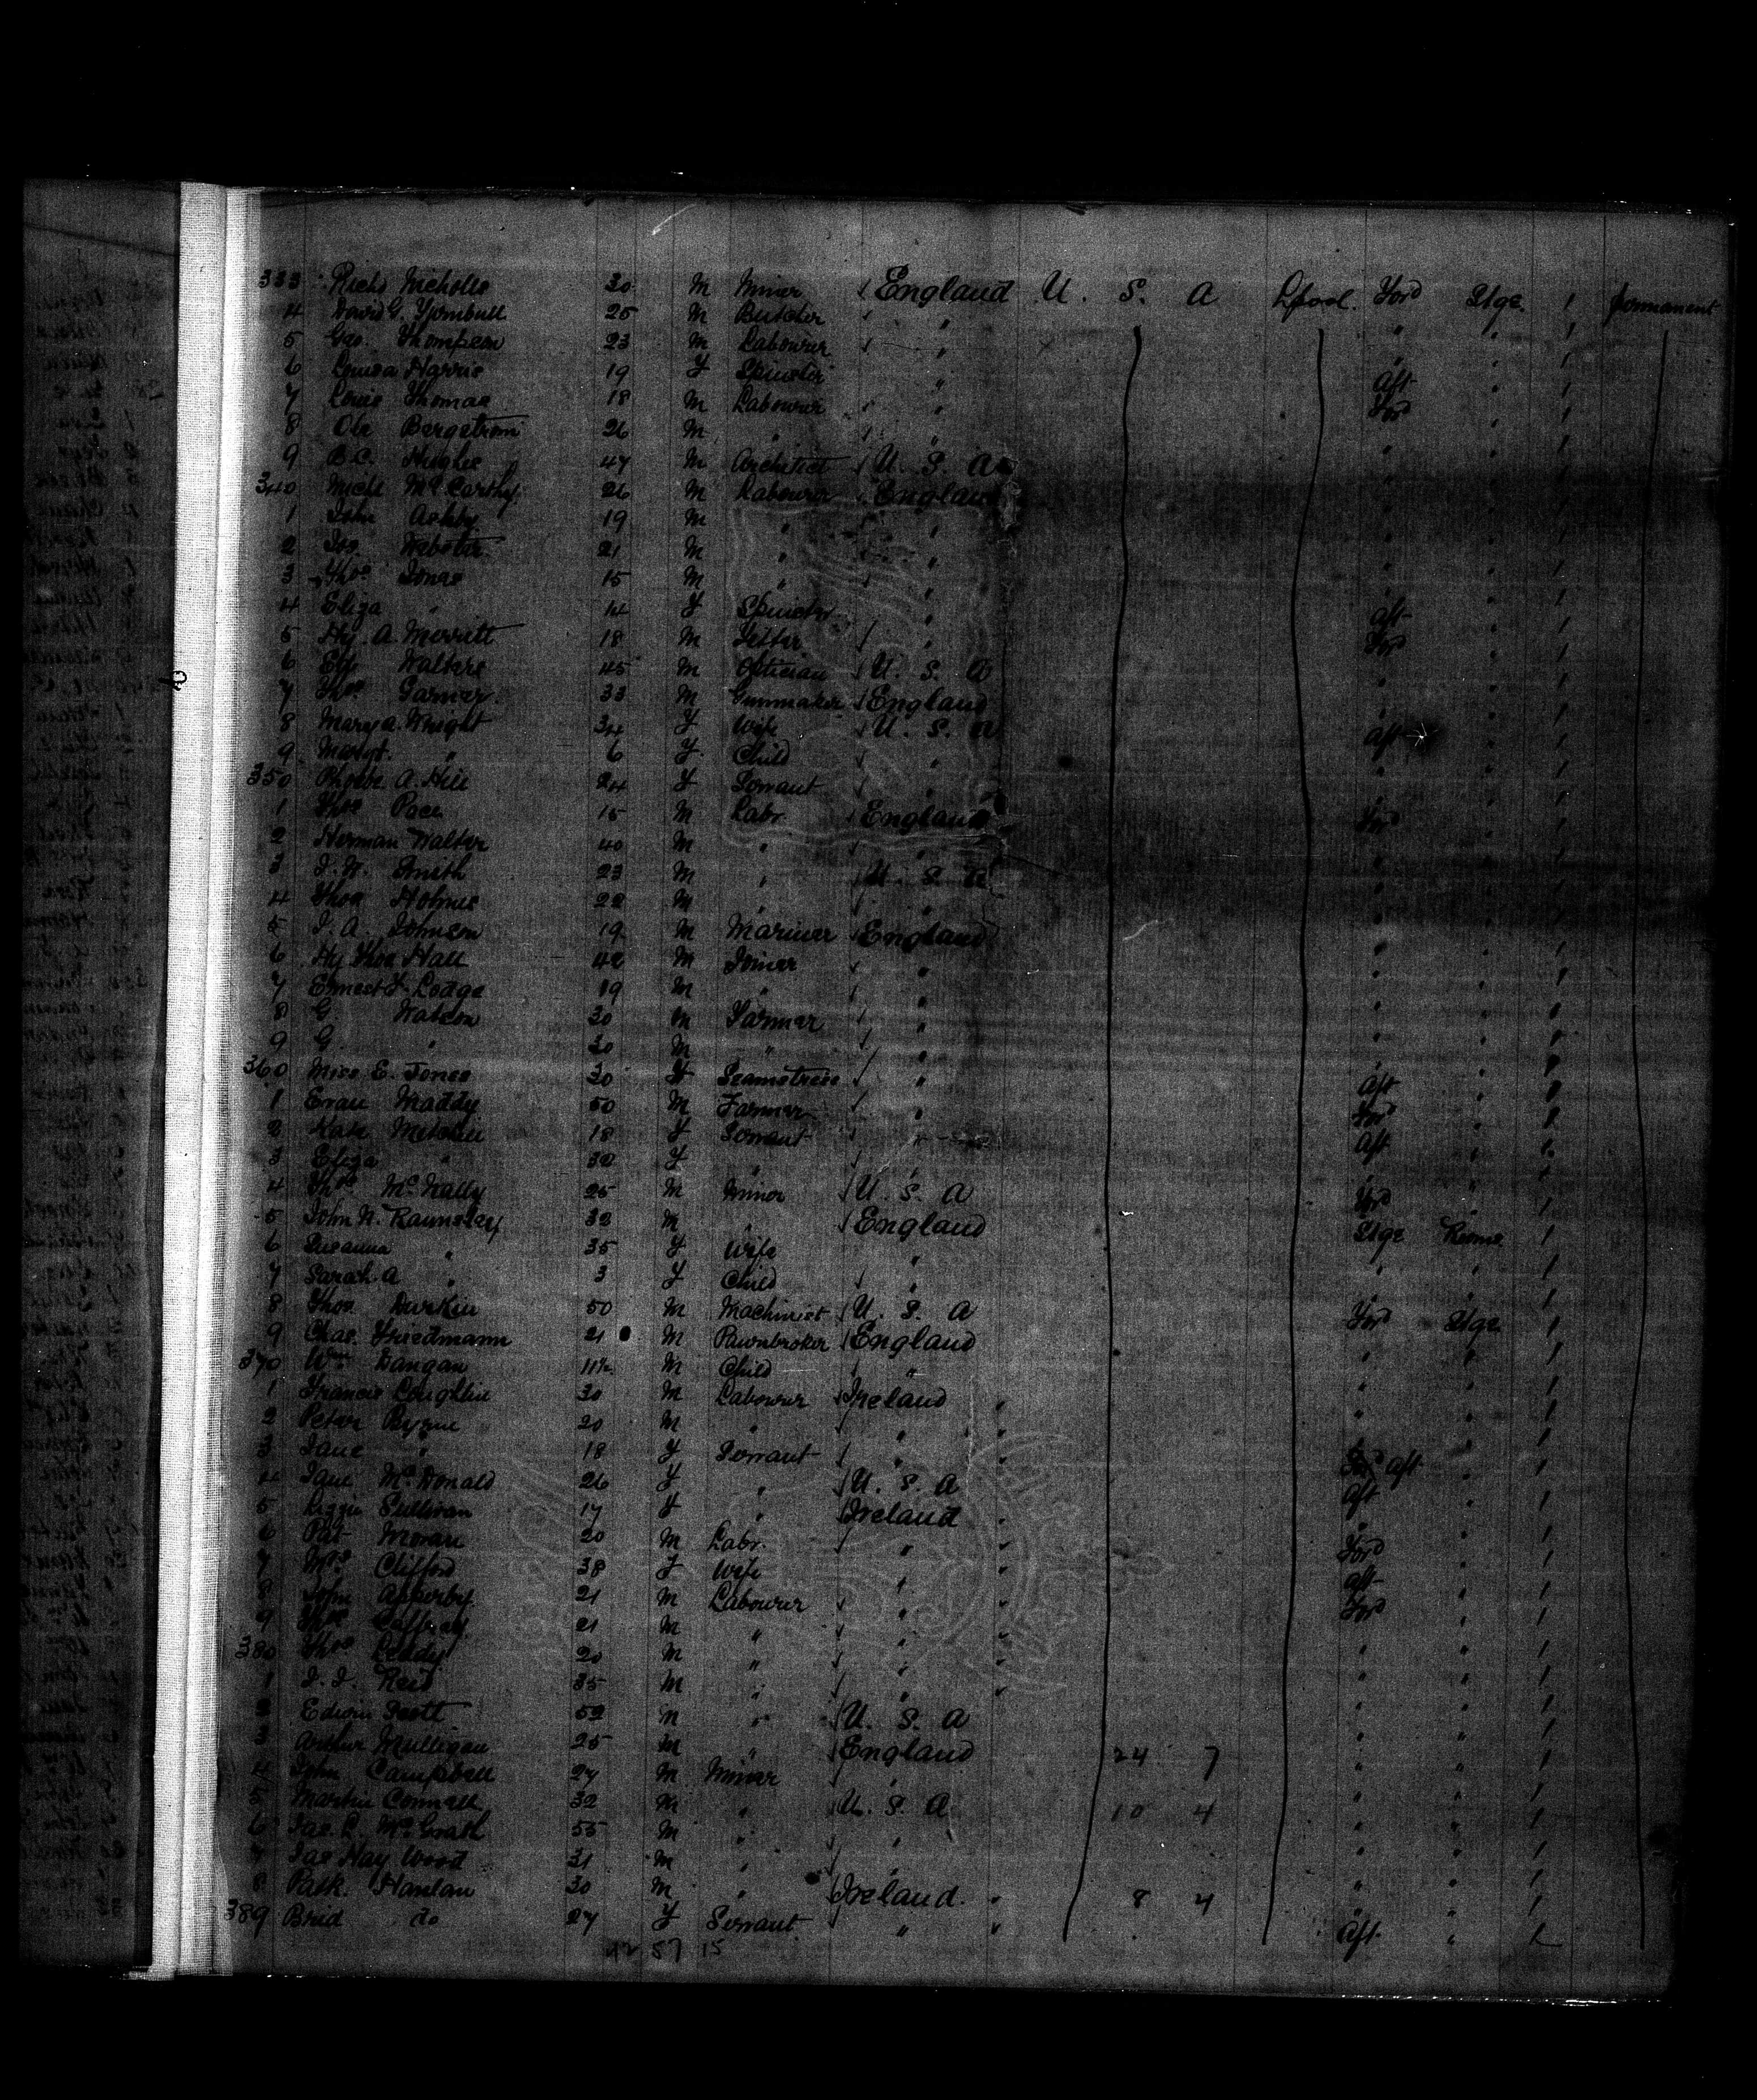 333 Richd Nicholls 30 M Miner England U. S. A Lpool. Ford Stge. 1 permanent
4 David G. 25 M Butcher " " " 1
5 Geo. Thompson 23 M Labourer " " " 1
6 Louisa Harris 19 F Spinster " Aft " 1
7 Louis Thomas 18 M Labourer " Ford " 1
8 Ole Bergstrom 26 M " " " " 1
9 B.C. Hughes 47 M Architect U. S. A " " 1
340 Michl McCarthy 26 M Labourer England " " 1
1 John Ashby 19 M " " " " 1
2 Jos. Webster 21 M " " " " 1
3 Thos Jones 15 M " " " " 1
4 Eliza " 14 F Spinster " Aft " 1
5 Hy. A. Merritt 18 M " Ford " 1
6 Walters 45 M Optician U. S. A " " 1
7 Thos Garner 33 M Gunmaker England " " 1
8 Mary A. Wright 34 F Wife U. S. A Aft " 1
9 Margt. " 6 F Child " " " 1
350 Phoebe A. Hill 24 F Servant " " " 1
1 Thos Pace 15 M Labr. England Ford " 1
2 Herman Walter 40 M " " " " 1
3 J. W. Smith 23 M " U. S. A " " 1
4 Thos Holmes 22 M " " " " 1
5 J. A. Johnson 19 M Mariner England " " 1
6 Hy Thos Hall 42 M Joiner " " " 1
7 Ernest F. Lodge 19 M " " " " 1
8 G. Watson 30 M Farmer " " " 1
9 G. " 30 M " " " " 1
360 Miss E. Jones 30 F Seamstress " Aft " 1
1 Evan Maddy 50 M Farmer " Ford " 1
2 Kate Mitchell 18 F Servant " Aft " 1
3 Eliza " 32 F " " " " 1
4 Thos McNally 25 M Miner U. S. A Ford " 1
5 John N. Rawnsley 32 M " England Stge Rooms 1
6 Susanna " 35 F Wife " " " 1
7 Sarah A " 3 F Child " " " 1
8 Thos Durkin 50 M Machinist U. S. A Ford Stge 1
9 Chas. Friedmann 21 M Pawnbroker England " " 1
370 Wm Dangan 11½ M Child " " " 1
1 Francis Coughlin 30 M Labourer Ireland " " 1
2 Peter Byrne 20 M " " " " 1
3 Jane " 18 F Servant " Ford Aft " 1
4 Jane McDonald 26 F " U. S. A Aft " 1
5 Lizzie Sullivan 17 F " Ireland " " 1
6 Pat Moran 20 M Labr. " Ford " 1
7 Mrs Clifford 38 F Wife " Aft " 1
8 John Apperby 21 M Labourer " Ford " 1
9 Thos Caffray 21 M " " " " 1
380 Thos Leddy 20 M " " " " 1
1 J. J. Reid 35 M " " " " 1
2 Edwin Scott 52 M " U. S. A " " 1
3 Arthur Mulligan 25 M " England 24 7 " " 1
4 John Campbell 27 M Miner " " " 1
5 Martin Connell 32 M " U. S. A 10 4 " " 1
6 Jas. L. McGrath 55 M " " " " 1
7 Jas Hay Wood 31 M " " " " 1
8 Patk. Hanlan 30 M " Ireland 8 4 " " 1
389 Brid do 27 F Servant " Aft. " 1
42 57 15